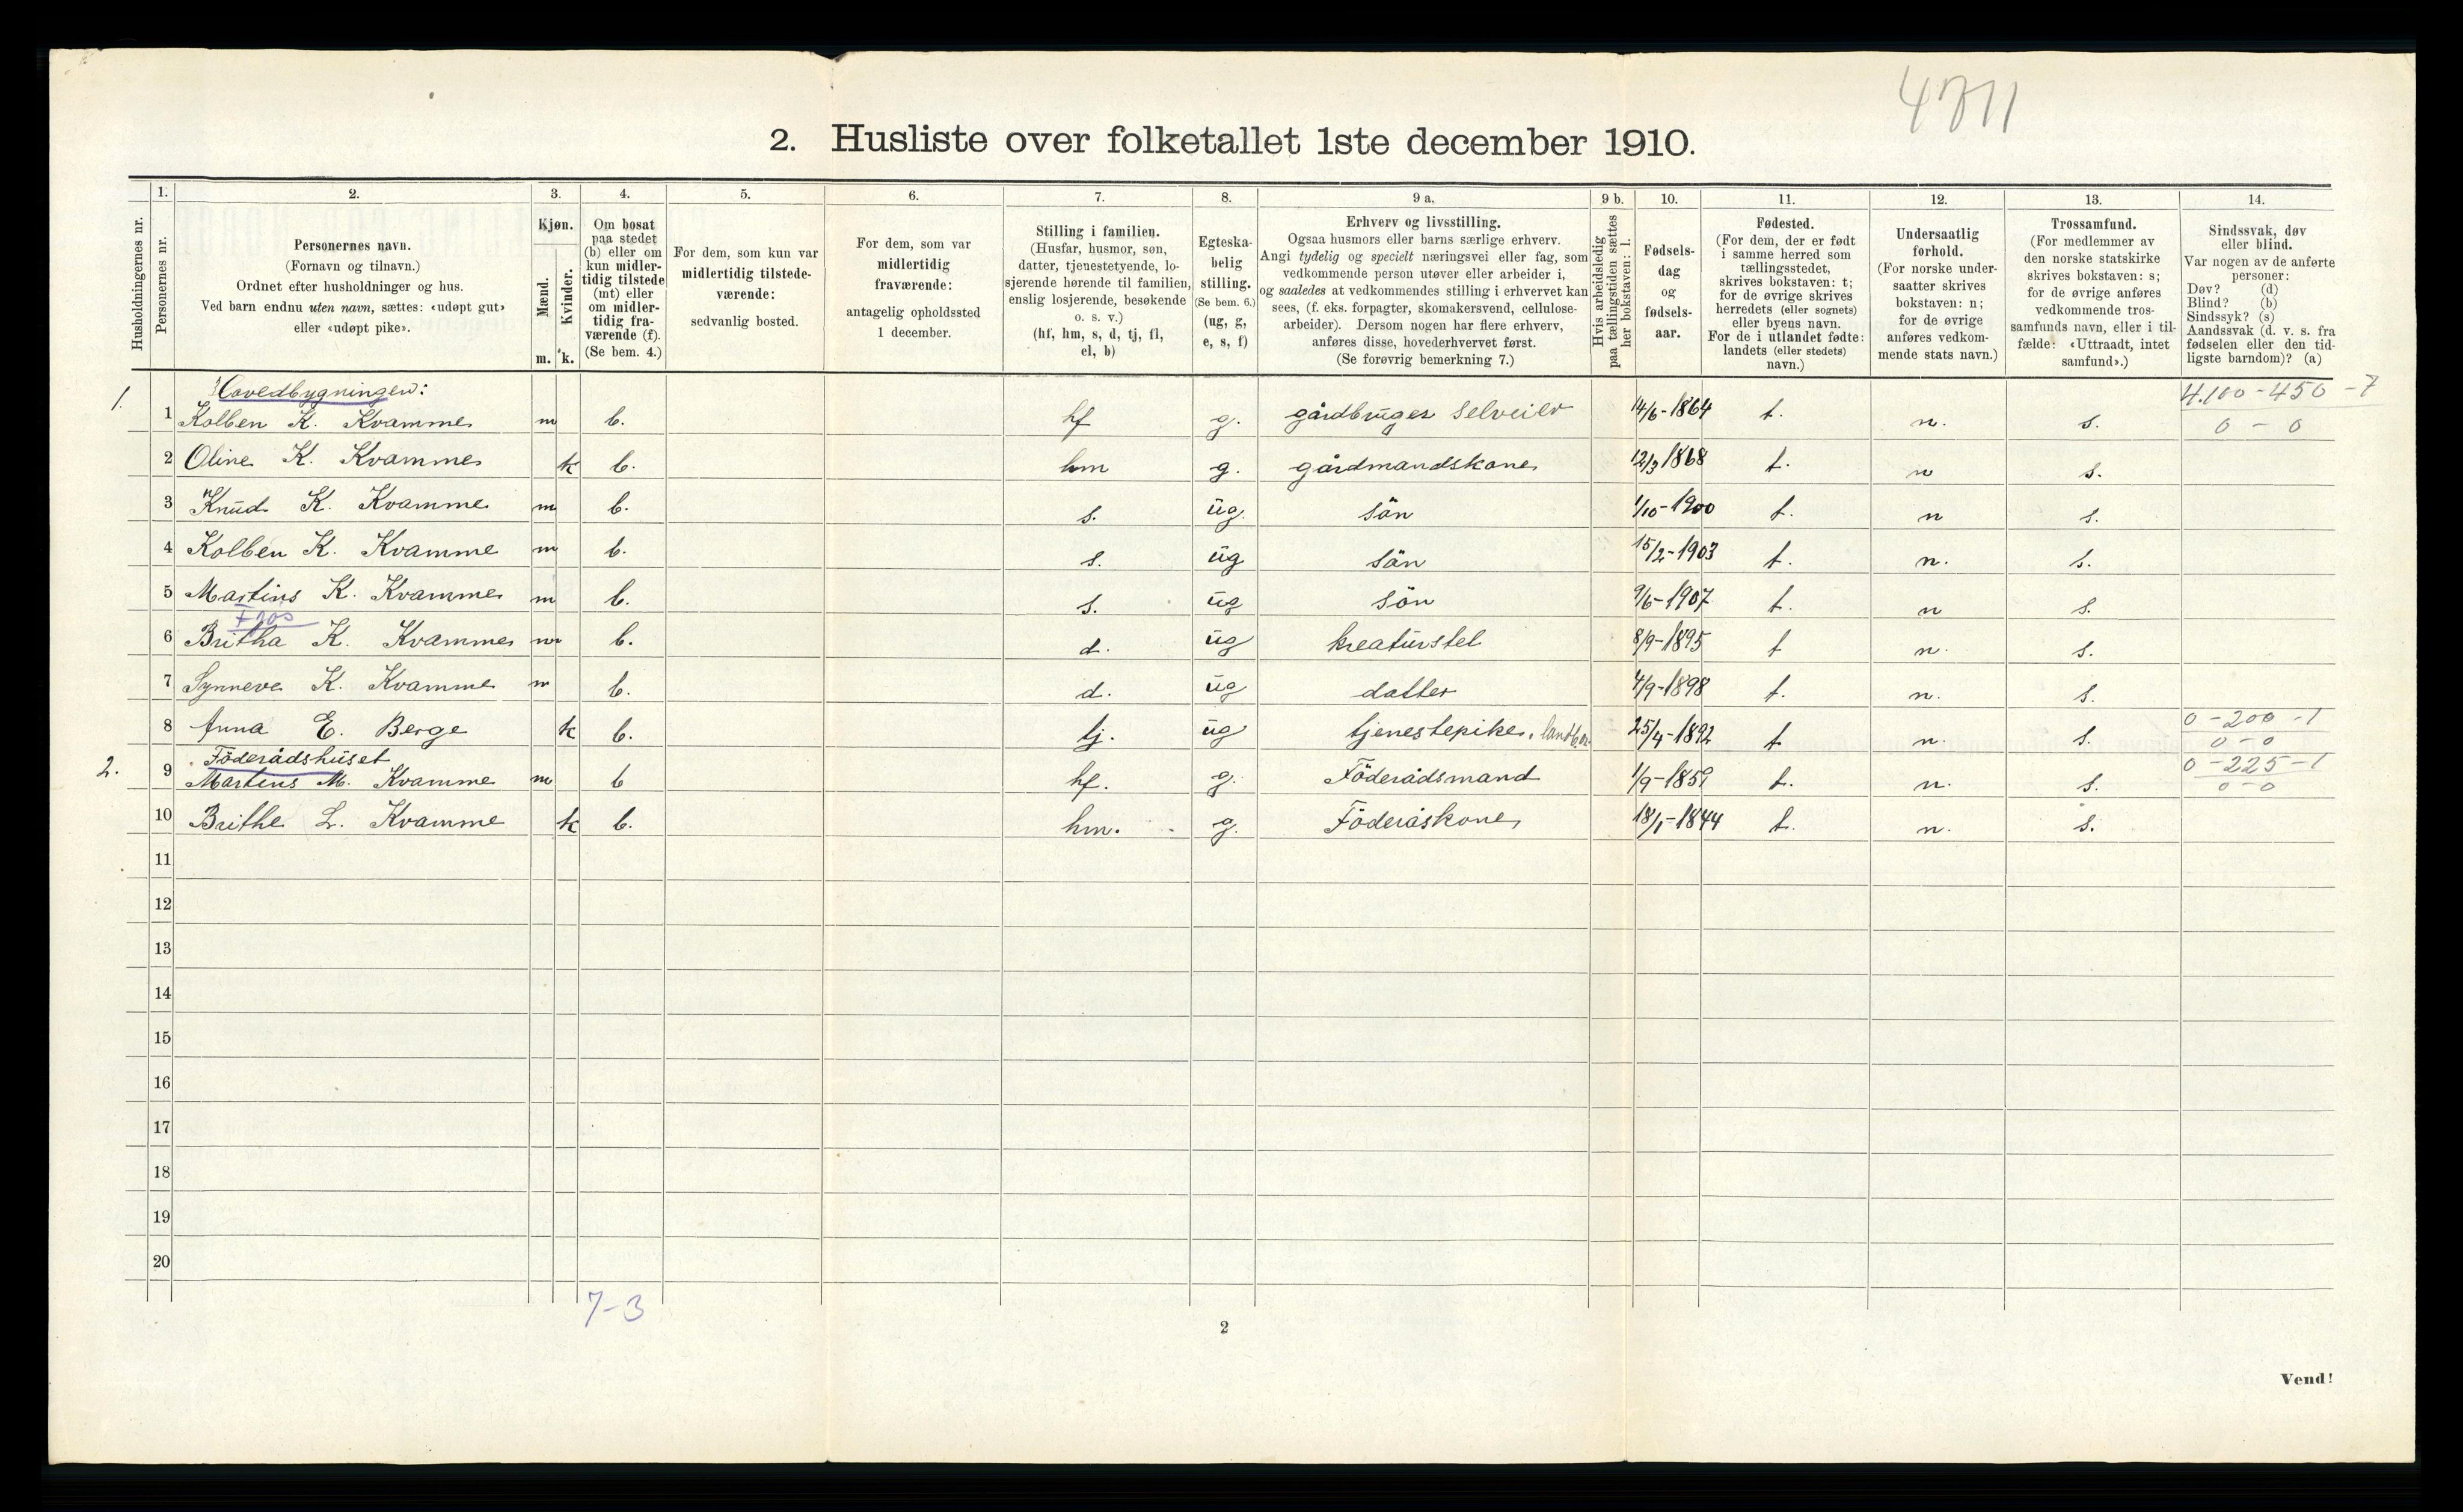 4711
2. Husliste over folketallet 1ste december 1910.
Husholdningernes nr.
1. Personernes nr.
2. Personernes navn. (Fornavn og tilnavn.) Ordnet efter husholdninger og hus. Ved barn endnu uten navn, sættes: «udøpt gut» eller «udøpt pike».
3. Kjøn. Mænd. m. Kvinder. k.
4. Om bosat paa stedet (b) eller om kun midlertidig tilstede (mt) eller om midlertidig fraværende (f). (Se bem. 4.)
5. For dem, som kun var midlertidig tilstedeværende: sedvanlig bosted.
6. For dem, som var midlertidig fraværende: antagelig opholdssted 1 december.
7. Stilling i familien. (Husfar, husmor, søn, datter, tjenestetyende, losjerende hørende til familien, enslig losjerende, besøkende o. s. v.) (hf, hm, s, d, tj, fl, el, b)
8. Egteskabelig stilling. (Se bem. 6.) (ug, g, e, s, f)
9 a. Erhverv og livsstilling. Ogsaa husmors eller barns særlige erhverv. Angi tydelig og specielt næringsvei eller fag, som vedkommende person utøver eller arbeider i, og saaledes at vedkommendes stilling i erhvervet kan sees, (f. eks. forpagter, skomakersvend, cellulosearbeider). Dersom nogen har flere erhverv, anføres disse, hovederhvervet først. (Se forøvrig bemerkning 7.)
9 b. Hvis arbeidsledig paa tællingstiden sættes her bokstaven: l.
10. Fødselsdag og fødselsaar.
11. Fødested. (For dem, der er født i samme herred som tællingsstedet, skrives bokstaven: t; for de øvrige skrives herredets (eller sognets) eller byens navn. For de i utlandet fødte: landets (eller stedets) navn.)
12. Undersaatlig forhold. (For norske undersaatter skrives bokstaven: n; for de øvrige anføres vedkommende stats navn.)
13. Trossamfund. (For medlemmer av den norske statskirke skrives bokstaven: s; for de øvrige anføres vedkommende trossamfunds navn, eller i tilfælde: «Uttraadt, intet samfund».)
14. Sindssvak, døv eller blind. Var nogen av de anførte personer: Døv? (d) Blind? (b) Sindssyk? (s) Aandssvak (d. v. s. fra fødselen eller den tidligste barndom)? (a)
Hovedbygningen: 4.100-450-7
1. 1 Kolben K. Kvamme m b. hf g. gårdbruger selveier 14/6-1864 t. n. s. 0-0
2 Oline K. Kvamme k b. hm g. gårdmandskone 12/3 1868 t. n s.
3 Knud K. Kvamme m b. s. ug. sön 1/10-1900 t. n s.
4 Kolben K. Kvamme m b. s. ug sön 15/2-1903 t. n. s.
5 Martins K. Kvamme m b. s. ug sön 9/6-1907 t. n s.
6 Britha K. Kvamme m b. d. ug kreaturstel 8/9-1895 t n. s.
7 Synneve K. Kvamme m b. d. ug datter 4/9-1898 t. n. s.
8 Anna E. Berge k b. tj. ug tjenestepike. landb. 25/4-1892 t n. s. 0-200-1 0-0
Föderådshuset 0-225-1
2. 9 Martins M. Kvamme m b hf. g. Föderådsmand 1/9-1859 t. n. s. 0-0
10 Brithe L. Kvamme k b. hm. g. Föderåskone 18/1-1844 t. n. s.
11
12
13
14
15
16
17
18
19
20
7-3
2
Vend!